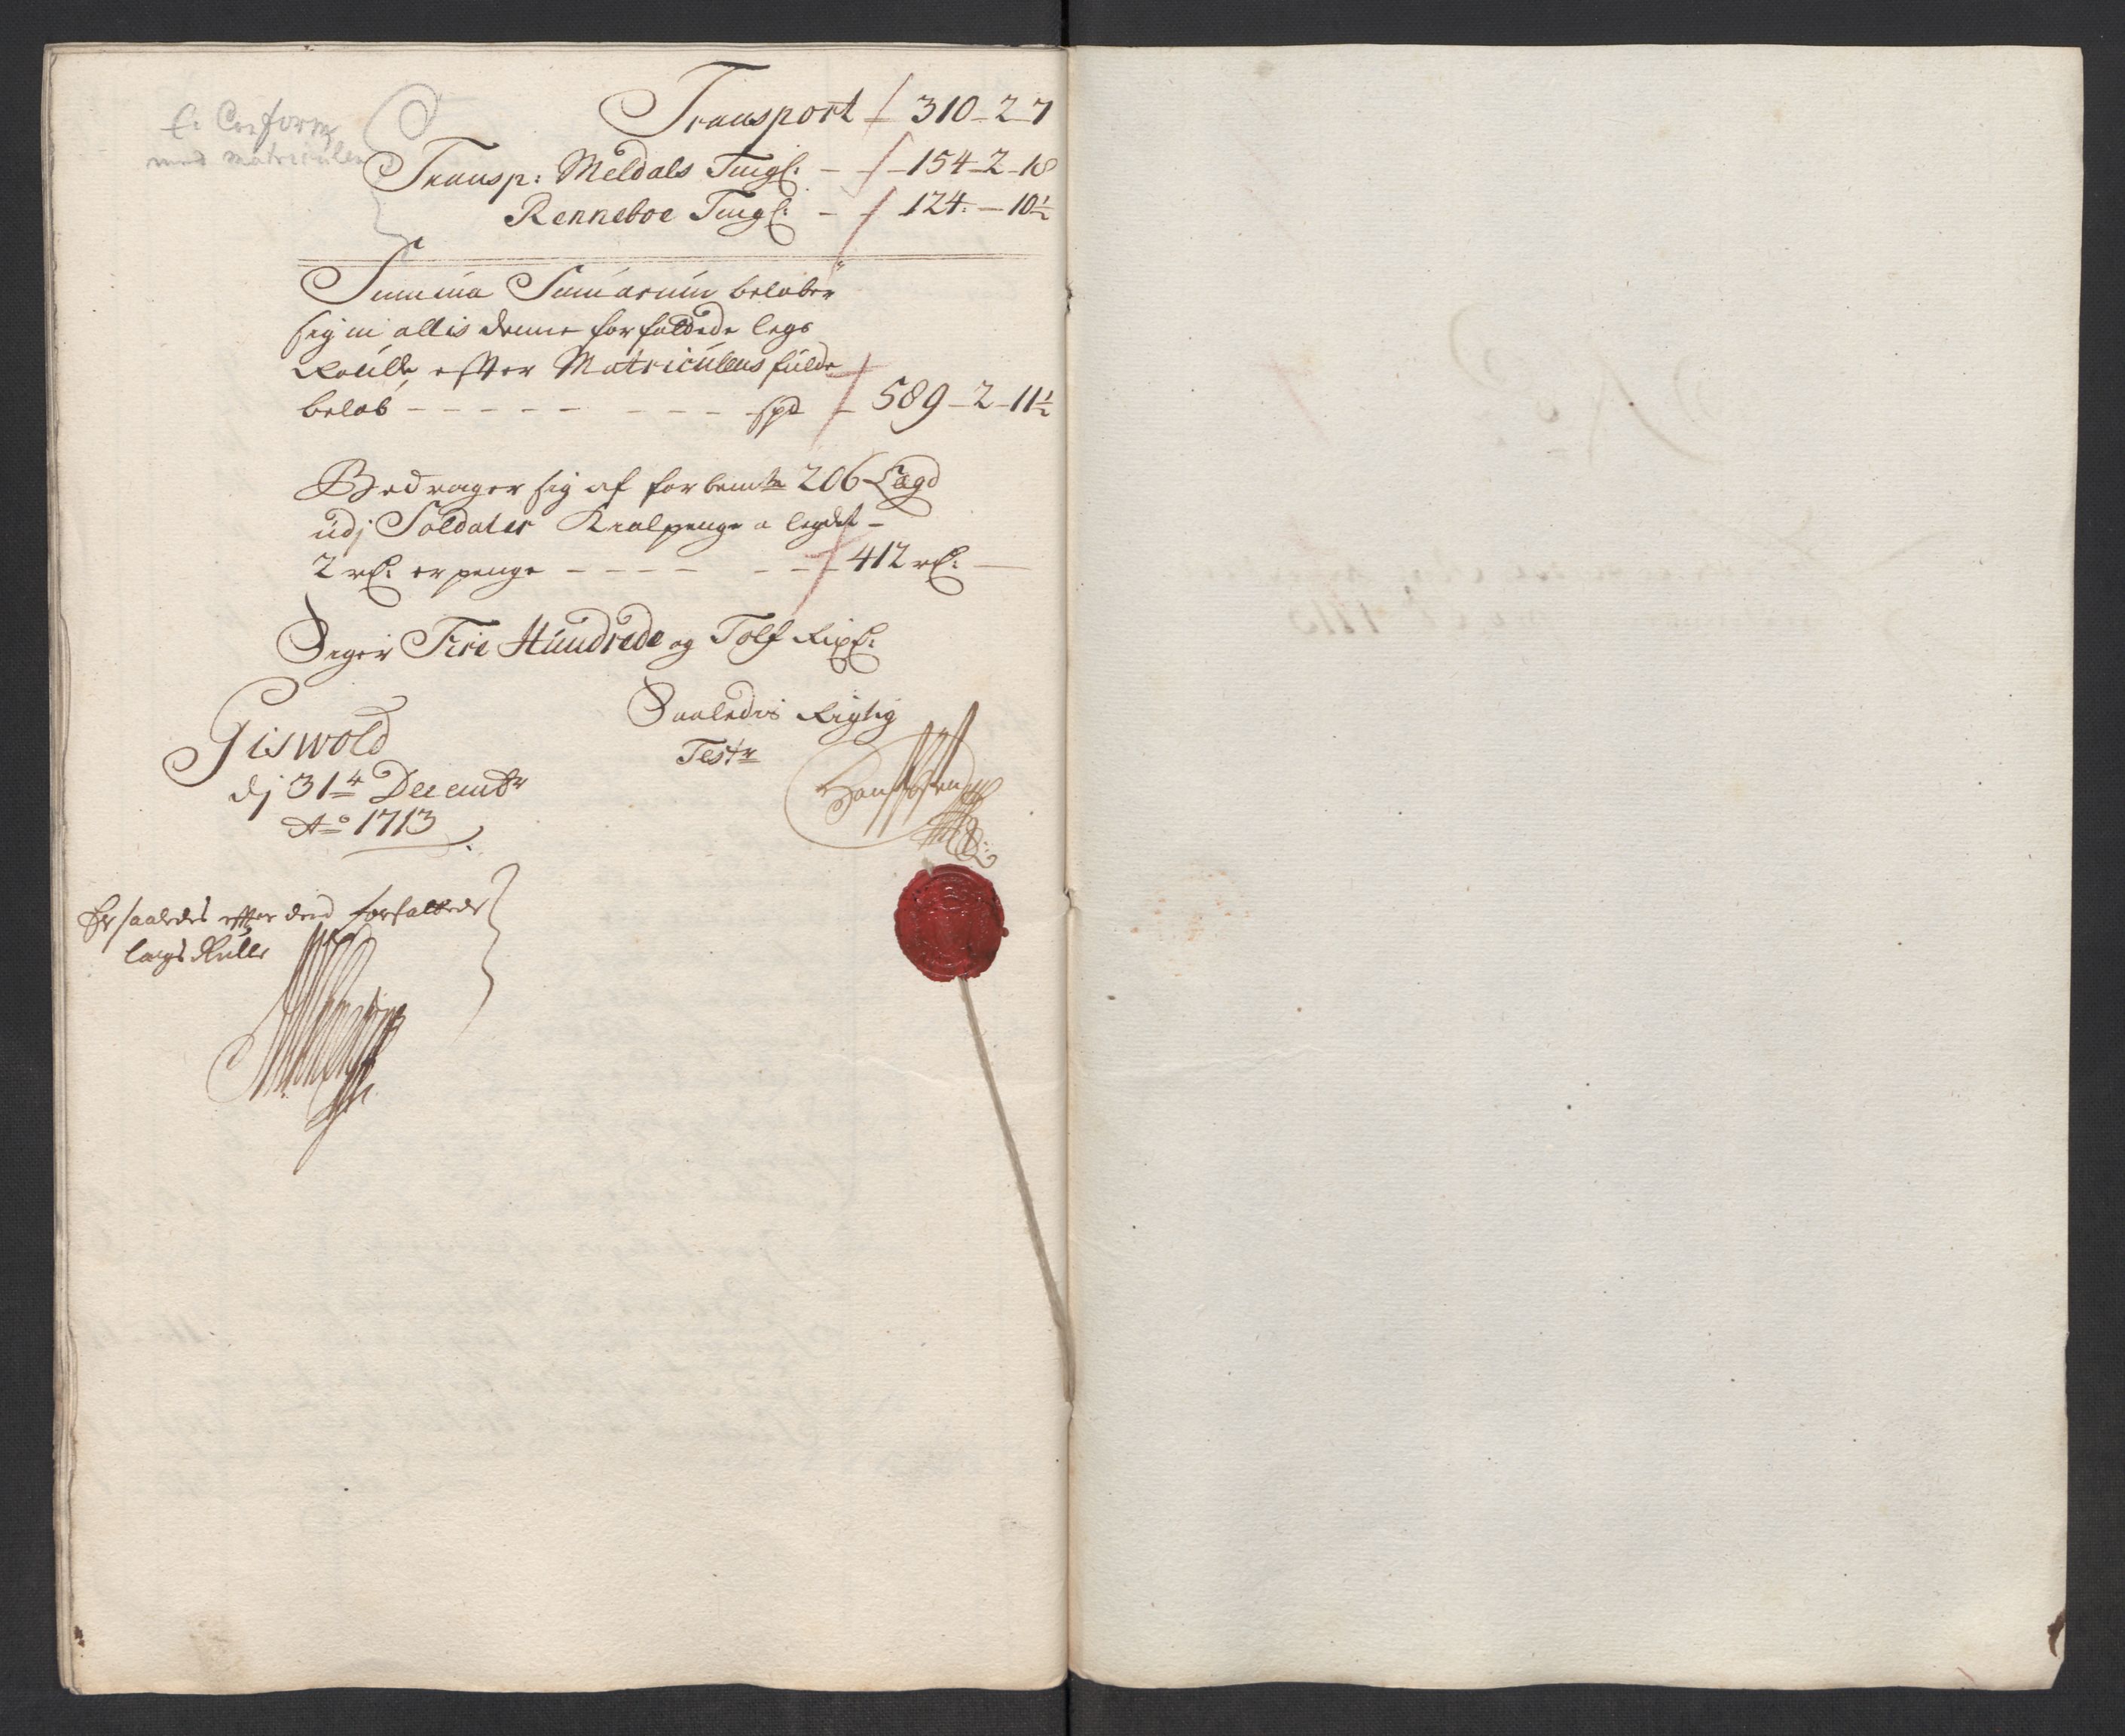 Er Conform
med Matriculen
Transport 310 - 2 - 7
Transp: Meldals Tingl: - 154 - 2 - 18
Renneboe Tingl: - 124. - 10½
Summa Sumarum beløber
sig in alt is denne forfattede legs
Roulle, efter Matriculens fulde
beløb - - - - - spd - 589 - 2 - 11½
Bedrager sig af forbemte 206 Lægd
udj Soldater Kiolpenge a legdet -
2 rd: er penge - - - - 412 rd:
Siger Fire Hundrede og Tolf Rixd:
Saaledis Rigtig
Giswold
Teste
dj 31te Decembr
Ao 1713
Er saaledes efter den forfattede
lægs Rulle
1713